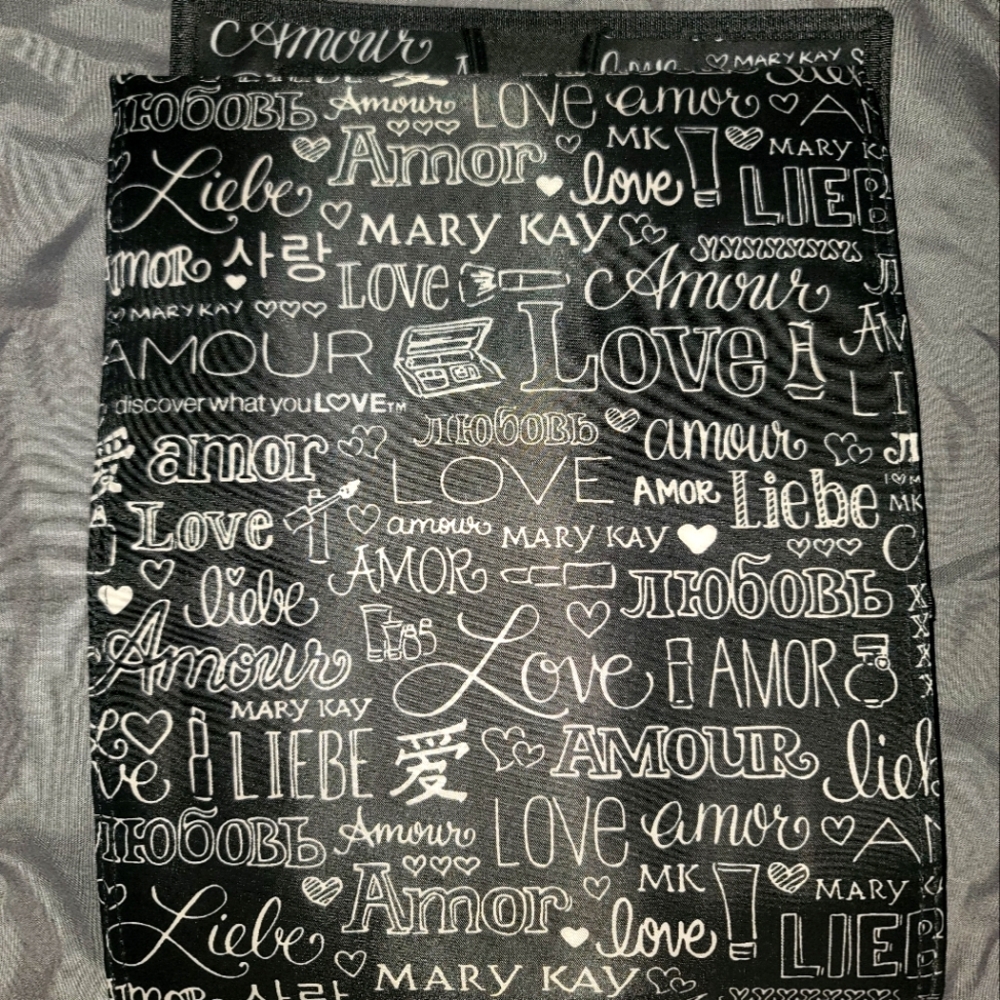 Amour MARY KAY
ЛЮБОВЬ Amour LOVE amor
MK MARY
Liebe Amor love LIEB
MARY KAY
AMOR 사랑 LOVE Amour
MARY KAY
AMOUR Love
discover what you LOVE™
ЛЮБОВЬ amour
amor LOVE AMOR Liebe
MK
Love amour MARY KAY
AMOR ЛЮБОВЬ
liebe
Amour Love AMOR
MARY KAY
LIEBE 愛 AMOUR lieb
ЛЮБОВЬ Amour LOVE amor
MK MARY
Liebe Amor love LIEB
MARY KAY